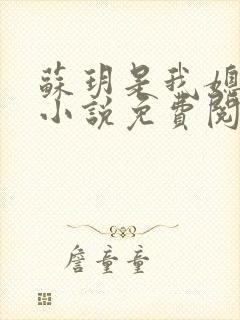 蘇玥是我媳
小說免費閱
詹童童